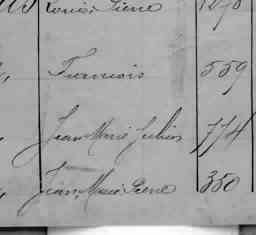 Louis Pierre 1270
François 559
Jean Marie Julien 774
Jean Marie Pierre 350